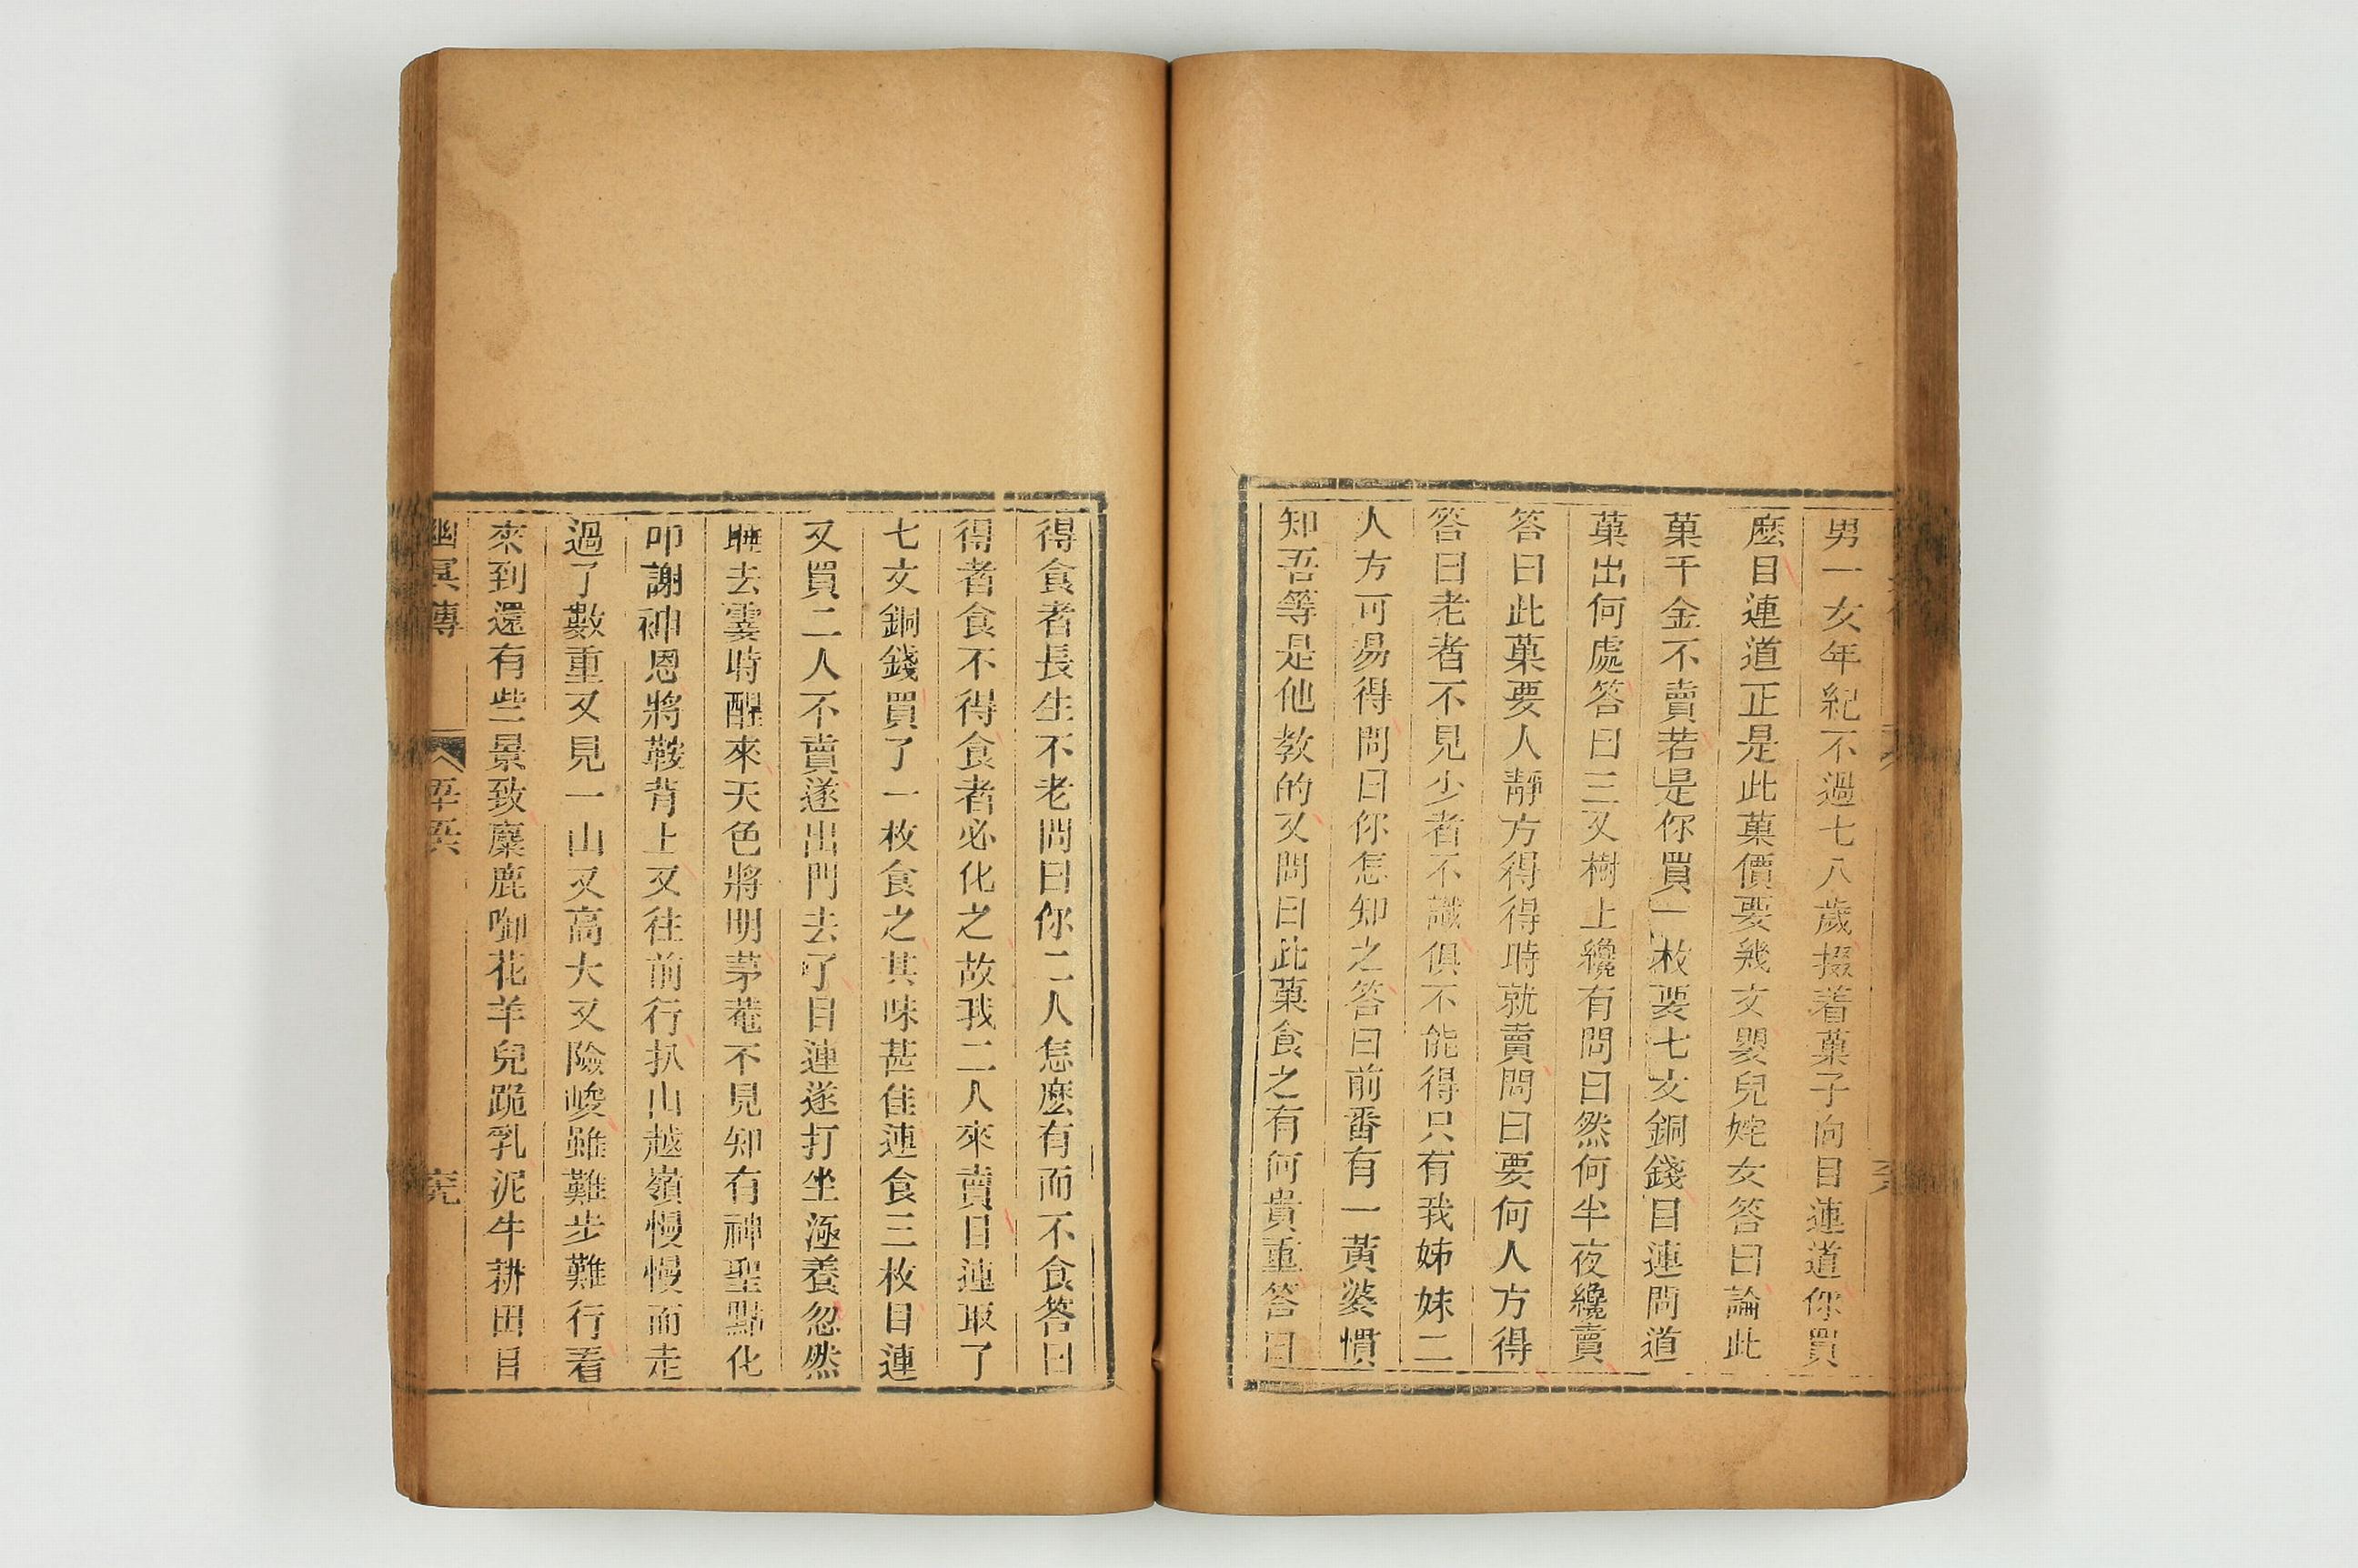 男一女年紀不過七八歲掇着菓子向目連道你買
麽目連道正是此菓價要幾文嬰兒姹女答曰論此
菓千金不賣若是你買一枚要七文銅錢目連問道
菓出何處答曰三叉樹上纔有問曰然何半夜纔賣
答曰此菓要人靜方得得時就賣問曰要何人方得
答曰老者不見少者不識俱不能得只有我姊妹二
人方可易得問曰你怎知之答曰前番有一黃婆慣
知吾等是他教的又問曰此菓食之有何貴重答曰
得食者長生不老問曰你二人怎麽有而不食答曰
得者食不得食者必化之故我二人來賣目連取了
七文銅錢買了一枚食之其味甚佳連食三枚目連
又買二人不賣遂出門去了目連遂打坐溫養忽然
睡去霎時醒來天色將明茅菴不見知有神聖點化
叩謝神恩將鞍背上又往前行扒山越嶺慢慢而走
過了數重又見一山又高大又險峻雖難步難行看
來到還有些景致麋鹿啣花羊兒跪乳泥牛耕田目
幽冥傳